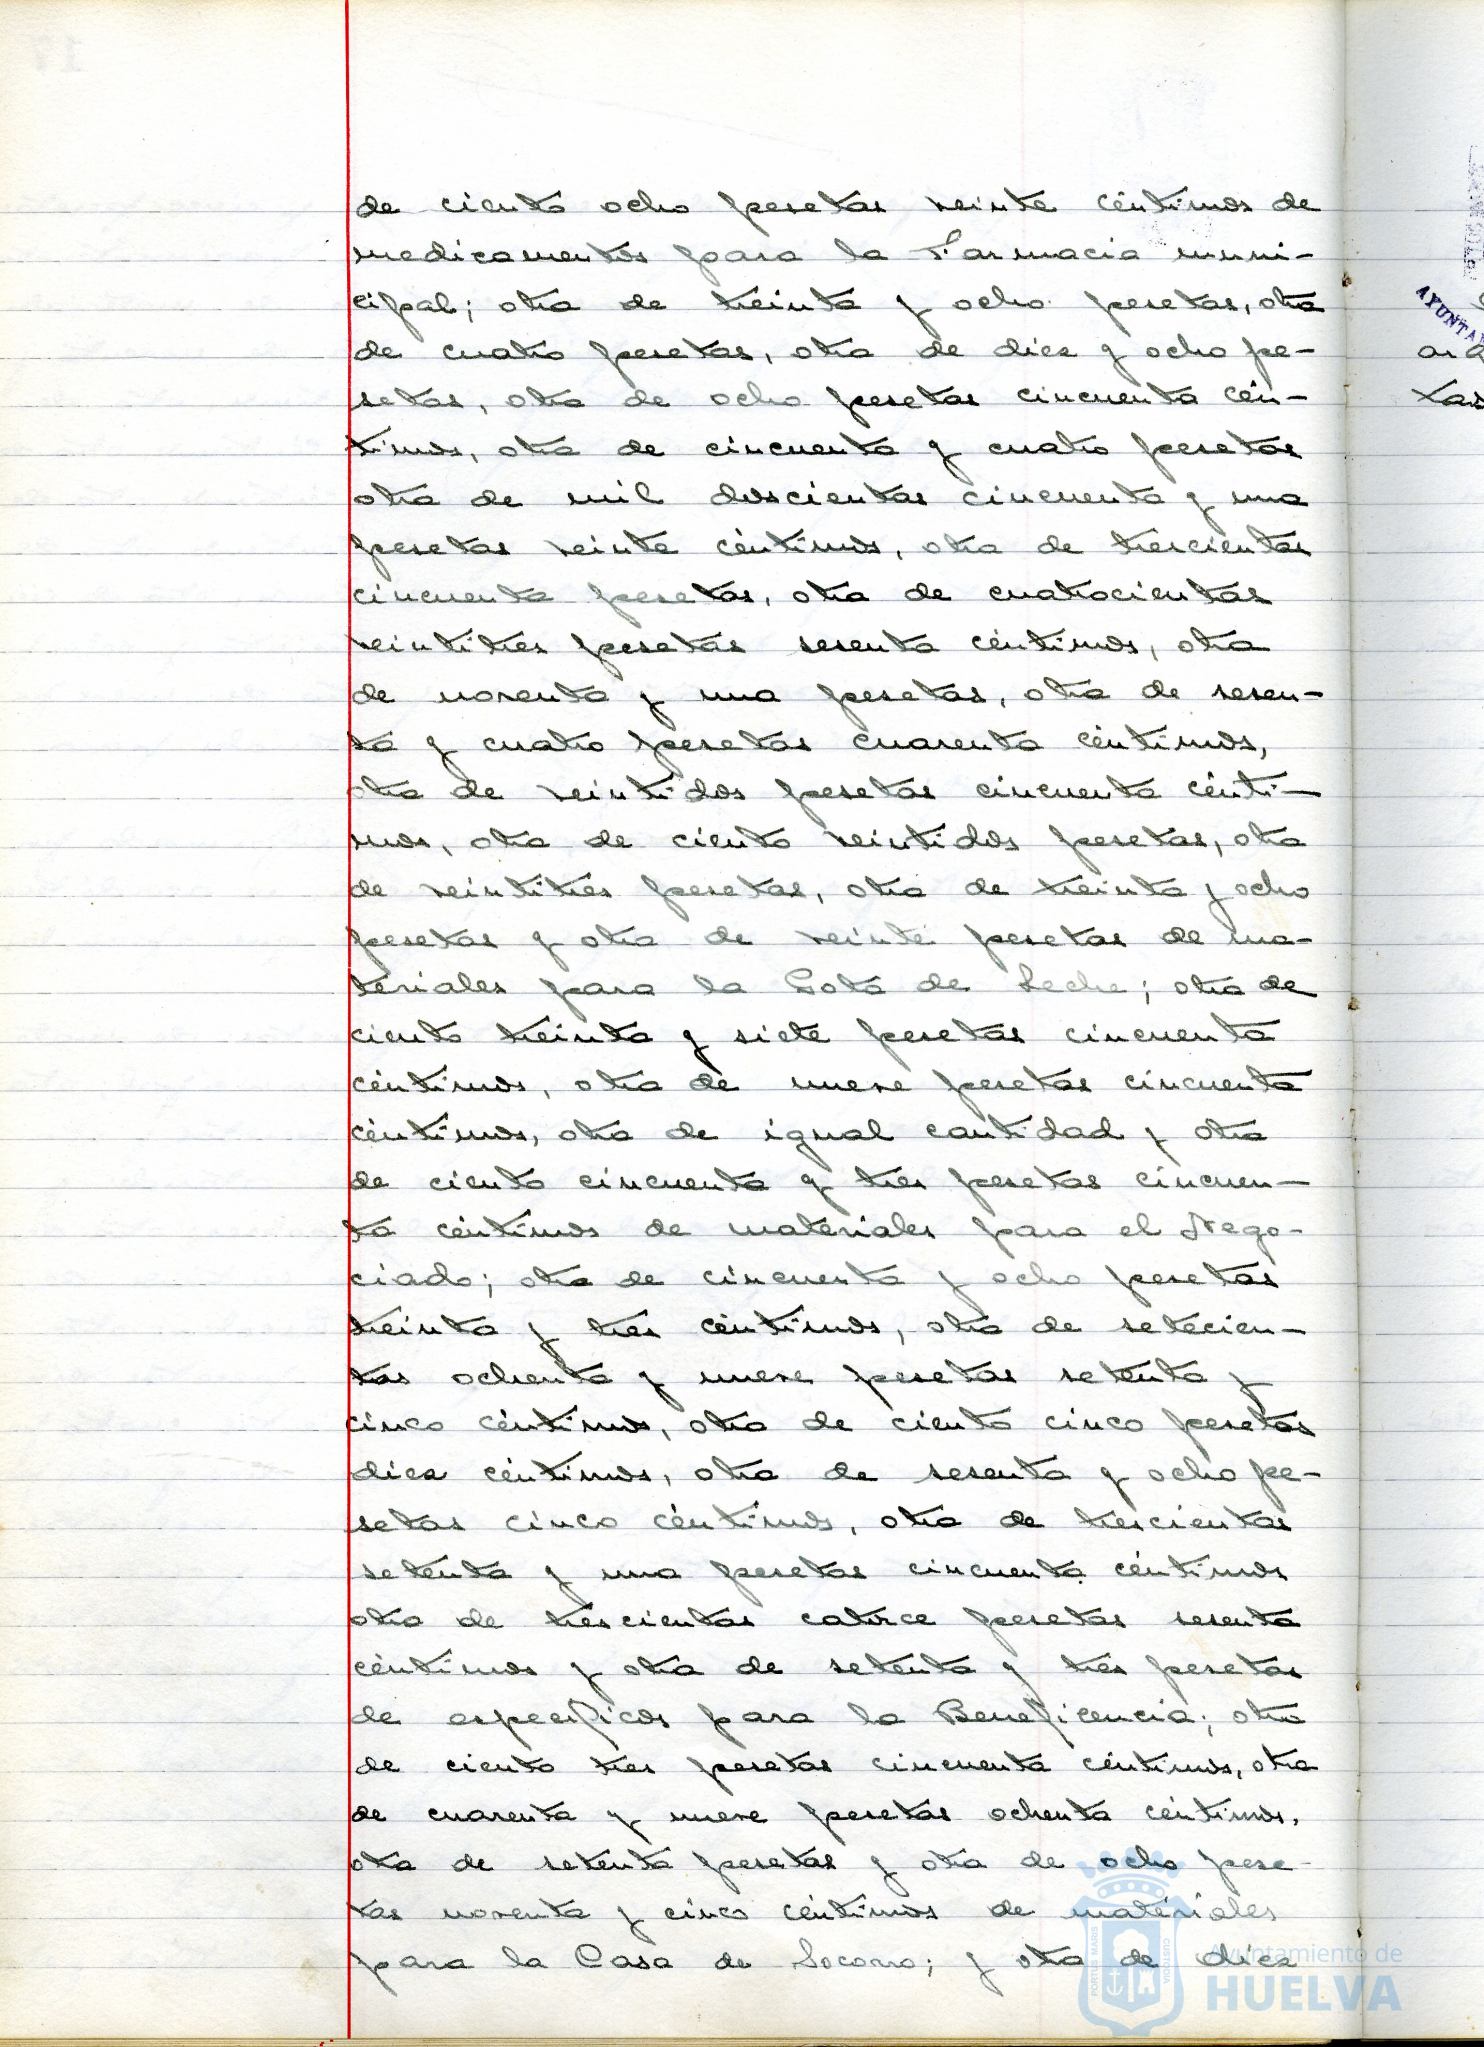 de ciento ocho pesetas veinte céntimos de
medicamentos para la Farmacia muni-
cipal; otra de treinta y ocho pesetas, otra
de cuatro pesetas, otra de diez y ocho pe-
setas, otra de ocho pesetas cincuenta cén-
timos, otra de cincuenta y cuatro pesetas
otra de mil doscientas cincuenta y una
pesetas veinte céntimos, otra de trescientas
cincuenta pesetas, otra de cuatrocientas
veintitres pesetas sesenta céntimos, otra
de noventa y una pesetas, otra de sesen-
ta y cuatro pesetas cuarenta céntimos,
otra de veintidos pesetas cincuenta cénti-
mos, otra de ciento veintidos pesetas, otra
de veintitres pesetas, otra de treinta y ocho
pesetas y otra de veinte pesetas de ma-
teriales para la Gota de Leche; otra de
ciento treinta y siete pesetas cincuenta
céntimos, otra de nueve pesetas cincuenta
céntimos, otra de igual cantidad y otra
de ciento cincuenta y tres pesetas cincuen-
ta céntimos de materiales para el Nego-
ciado; otra de cincuenta y ocho pesetas
treinta y tres céntimos, otra de setecien-
tas ochenta y nueve pesetas setenta y
cinco céntimos, otra de ciento cinco pesetas
diez céntimos, otra de sesenta y ocho pe-
setas cinco céntimos, otra de trescientas
setenta y una pesetas cincuenta céntimos
otra de trescientas catorce pesetas sesenta
céntimos y otra de setenta y tres pesetas
de específicos para la Beneficencia; otra
de ciento tres pesetas cincuenta céntimos, otra
de cuarenta y nueve pesetas ochenta céntimos,
otra de setenta pesetas y otra de ocho pese-
tas noventa y cinco céntimos de materiales
para la Casa de Socorro; y otra de diez
PORTUS MARIS CUSTODIA
Ayuntamiento de
HUELVA